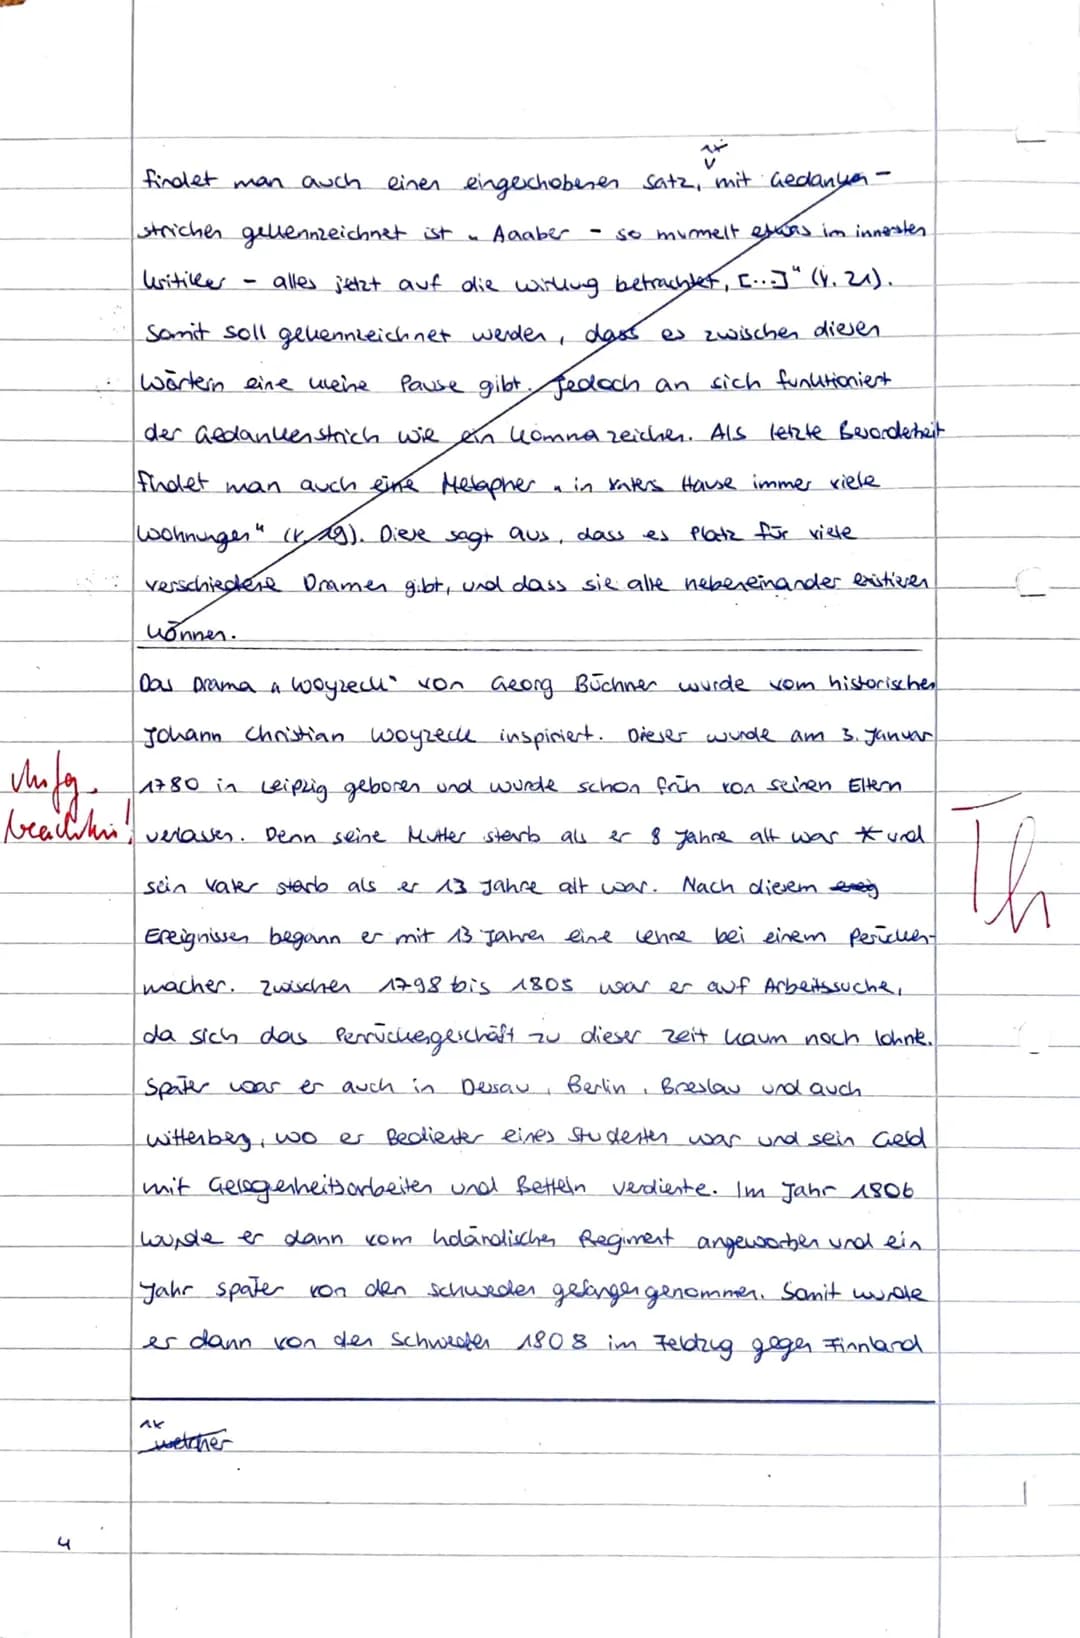 1x
findet man auch einen eingeschobenen Satz, mit Gedanken-
strichen gekennzeichnet ist „Aaaber – so murmelt etwas im innersten
Kritiker – alles jetzt auf die wirkung betrachtet, [...]" (V. 21).
Somit soll gekennzeichnet werden, dass es zwischen diesen
Wörtern eine kleine Pause gibt. Jedoch an sich funktioniert
der Gedankenstrich wie ein Kommazeichen. Als letzte Besonderheit
findet man auch eine Metapher „in Vaters Hause immer viele
Wohnungen" (V. 19). Diese sagt aus, dass es Platz für viele
verschiedene Dramen gibt, und dass sie alle nebeneinander existieren
können.
Das Drama „Woyzeck" von Georg Büchner wurde vom historischen
Johann Christian Woyzeck inspiriert. Dieser wurde am 3. Januar
1780 in Leipzig geboren und wurde schon früh von seinen Eltern
verlassen. Denn seine Mutter starb als er 8 Jahre alt war * und
sein Vater starb als er 13 Jahre alt war. Nach diesem ereig
Ereignissen begann er mit 13 Jahren eine Lehre bei einem Perücken-
macher. Zwischen 1798 bis 1805 war er auf Arbeitssuche,
da sich das Perrückengeschäft zu dieser Zeit kaum noch lohnte.
Später war er auch in Dessau, Berlin, Breslau und auch
Wittenberg, wo er Bediester eines Studenten war und sein Geld
mit Gelegenheitsarbeiten und Betteln verdiente. Im Jahr 1806
wurde er dann vom holändischen Regiment angeworben und ein
Jahr später von den Schweden gefangen genommen. Somit wurde
er dann von den Schweden 1808 im Feldzug gegen Finnland
1x
welcher
4
beachten!
Th